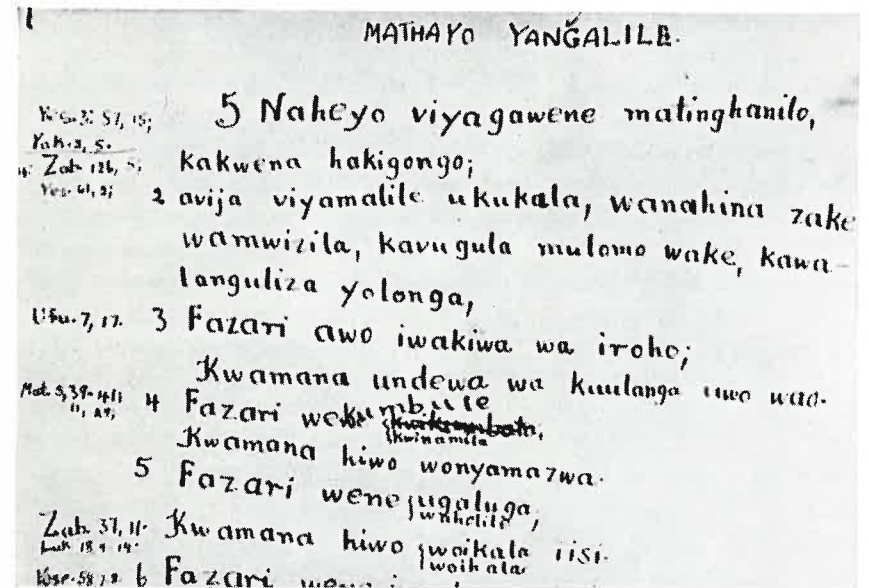 1
MATHAYO YANĞALILE.
5 Naheyo viyagawene matinghanilo,
Yak. 2, 5.
kakwena hakigongo;
Yes. 61, 2;
2 avija viyamalile ukukala, wanahina zake
wamwizila, kavugula mulomo wake, kawa-
languliza yolonga,
Ufu. 7, 17. 3 Fazari awo iwakiwa wa iroho;
Kwamana undewa wa kuulanga uwo wao.
Mat. 5, 39-41;
11, 29;
4 Fazari wekumbule
kwinamila
Kwamana hiwo wonyamazwa.
5 Fazari wene jugaluga,
wahelile
Zab. 37, 11. Kwamana hiwo woikala iisi.
woihala
6 Fazari